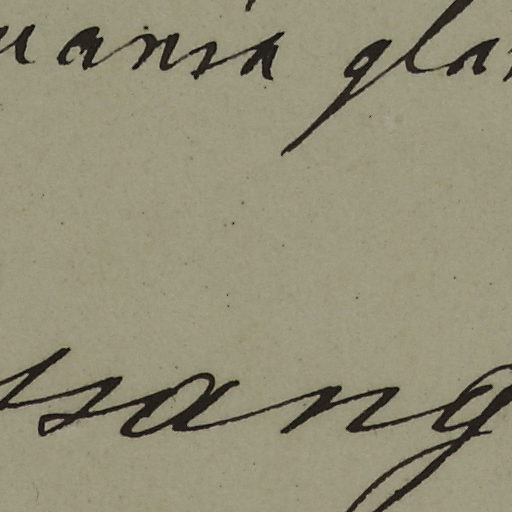 uansa gla
ssang